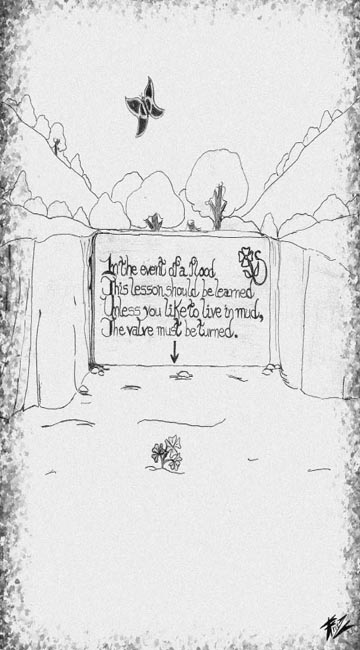 In the event of a flood
This lesson should be learned
Unless you like to live in mud,
The valve must be turned.